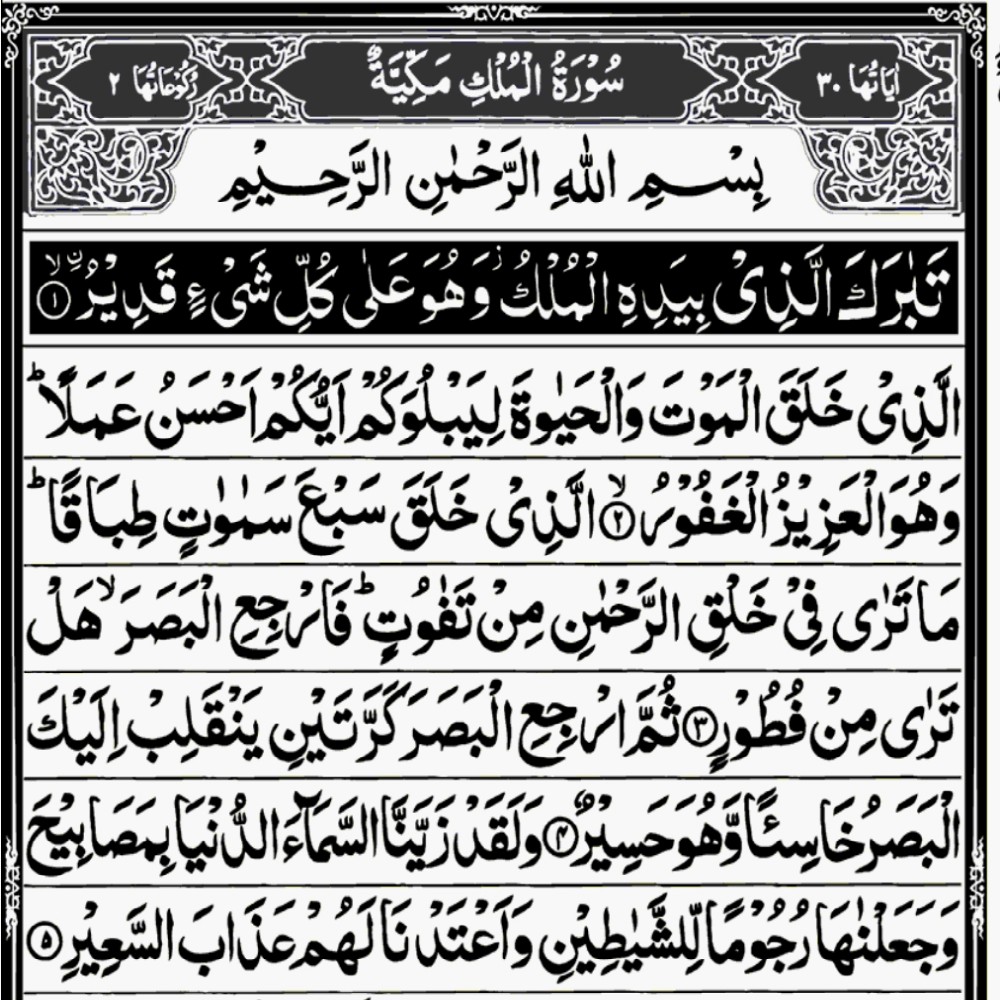 اٰيَاتُهَا ٣٠ سُوْرَةُ الْمُلْكِ مَكِّيَّةٌ رُكُوْعَاتُهَا ٢
بِسْمِ اللهِ الرَّحْمٰنِ الرَّحِيْمِ
تَبٰرَكَ الَّذِىْ بِيَدِهِ الْمُلْكُ ز وَهُوَ عَلٰى كُلِّ شَىْءٍ قَدِيْرُ ۨ ۙ ﴿۱﴾
الَّذِىْ خَلَقَ الْمَوْتَ وَالْحَيٰوةَ لِيَبْلُوَكُمْ اَيُّكُمْ اَحْسَنُ عَمَلًا ؕ
وَهُوَ الْعَزِيْزُ الْغَفُوْرُ ۙ ﴿۲﴾ الَّذِىْ خَلَقَ سَبْعَ سَمٰوٰتٍ طِبَاقًا ؕ
مَا تَرٰى فِىْ خَلْقِ الرَّحْمٰنِ مِنْ تَفٰوُتٍ ؕ فَارْجِعِ الْبَصَرَ ۙ هَلْ
تَرٰى مِنْ فُطُوْرٍ ﴿۳﴾ ثُمَّ ارْجِعِ الْبَصَرَ كَرَّتَيْنِ يَنْقَلِبْ اِلَيْكَ
الْبَصَرُ خَاسِئًا وَّهُوَ حَسِيْرٌ ﴿۴﴾ وَلَقَدْ زَيَّنَّا السَّمَآءَ الدُّنْيَا بِمَصَابِيْحَ
وَجَعَلْنٰهَا رُجُوْمًا لِّلشَّيٰطِيْنِ وَاَعْتَدْنَا لَهُمْ عَذَابَ السَّعِيْرِ ﴿۵﴾